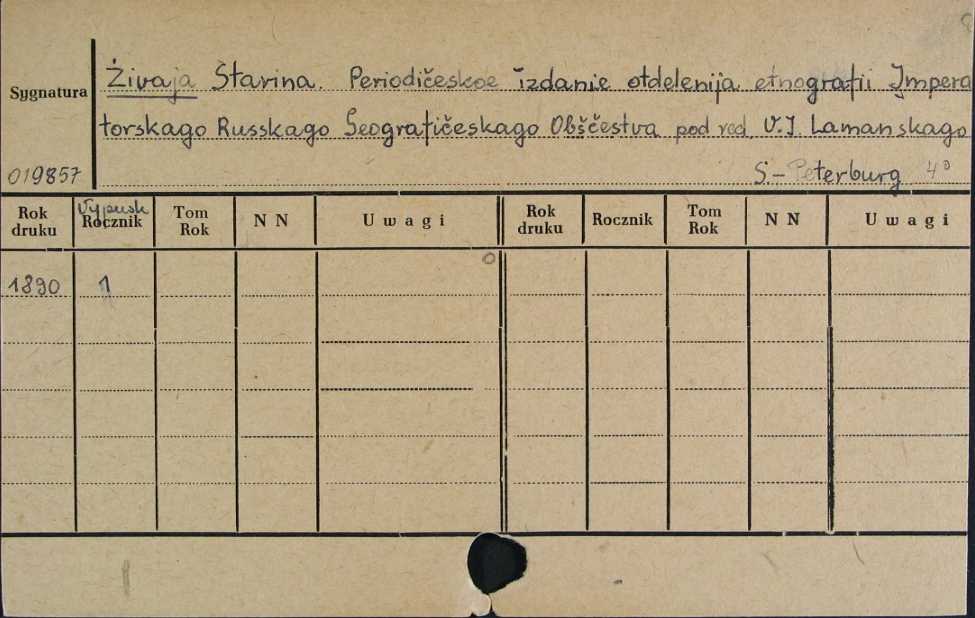 Živaja Starina. Periodičeskoe izdanie otdelenija etnografii Impera
torskago Russkago Geografičeskago Obščestva pod red V.I. Lamanskago
Sygnatura
019857
S.-Peterburg 4°
Rok druku Vypusk Rocznik Tom Rok N N Uwagi Rok druku Rocznik Tom Rok N N Uwagi
1890 1